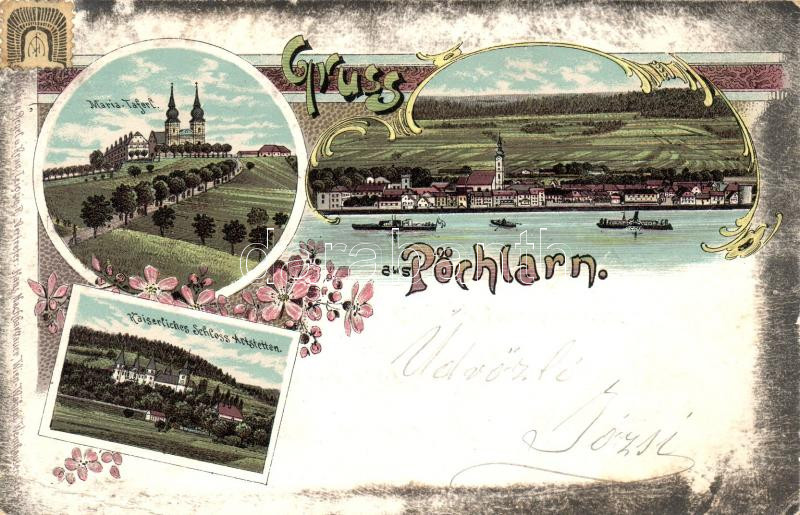 Gruss
Maria-Taferl.
aus Pöchlarn.
Kaiserliches Schloss Artstetten.
Üdvözli
Józsi
darabanth